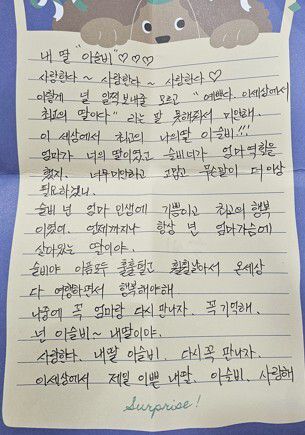 내 딸 "이슬비" ♡♡♡
사랑한다 ~ 사랑한다 ~ 사랑한다 ♡
이렇게 널 일찍 보내줄 모르고 "예쁘다. 이세상에서
최고의 딸이다" 라는 말 못해줘서 미안해.
이 세상에서 최고의 나의딸 이슬비!!!
엄마가 너의 딸이였고 슬비너가 엄마 역할을
했지. 너무미안하고 고맙고 무슨말이 더 이상
필요하겠니.
슬비 넌 엄마 인생에 기쁨이고 최고의 행복
이였어. 언제까지나 항상 넌 엄마가슴에
살아있는 딸이야.
슬비야 아픔모두 훌훌털고 훨훨날아서 온세상
다 여행하면서 행복해야해
나중에 꼭 엄마랑 다시 만나자. 꼭 기억해.
넌 이슬비~ 내딸이야.
사랑한다. 내딸 이슬비. 다시 꼭 만나자.
이세상에서 제일 이쁜 내딸. 이슬비. 사랑해
Surprise!